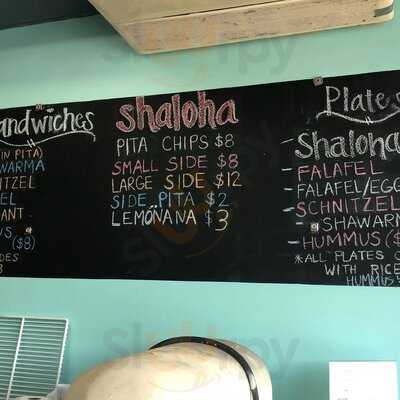 andwiches
IN PITA)
WARMA
NITZEL
EL
ANT
US
($8)
DES
8
Shaloha
PITA CHIPS $8
SMALL SIDE $8
LARGE SIDE $12
SIDE PITA $2
LEMONANA $3
Plates
Shaloha
- FALAFEL
- FALAFEL/EGG
- SCHNITZEL
SHAWAR
- HUMMUS ($
*ALL PLATES C
WITH RICE
HUMMUS